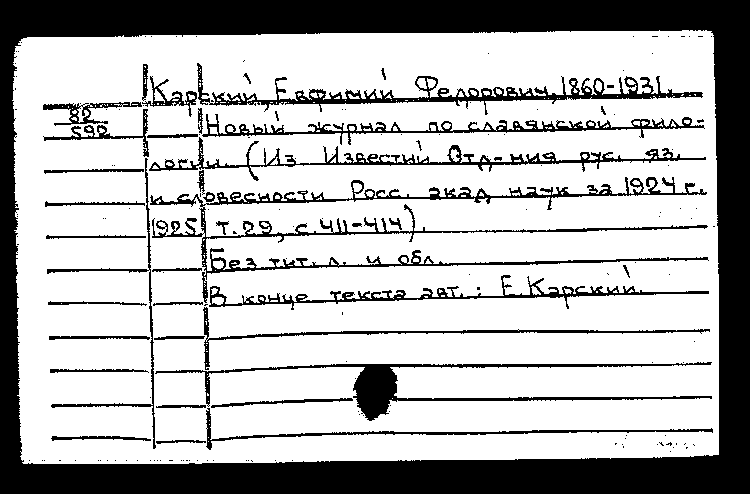 Карский, Евфимий Федорович, 1860-1931.
82
592
Новый журнал по славянской фило-
логии. (Из Известий Отд-ния рус. яз.
и словесности Росс. акад. наук за 1924 г.
1925 т. 29, с. 411-414).
Без тит. л. и обл.
В конце текста авт.: Е. Карский.